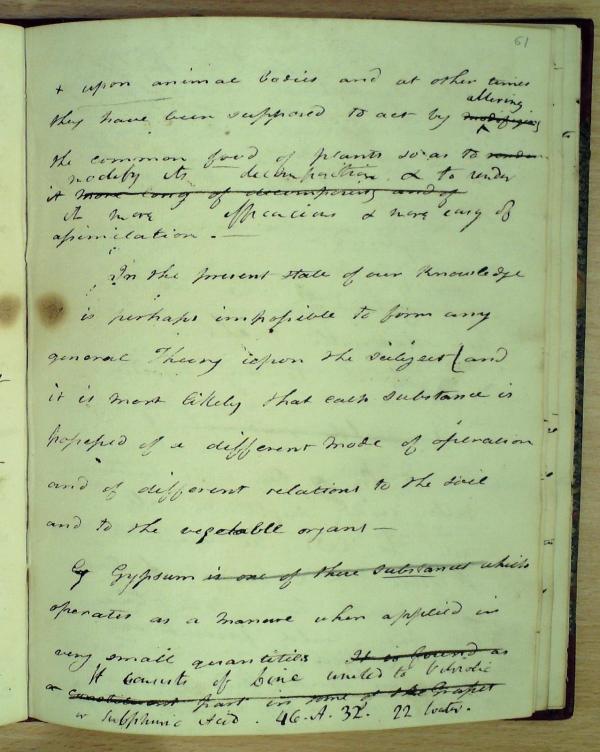 61
+ upon animal bodies and at other times
they have been supposed to act by modifying altering
the common food of plants so as to render
modify its decomposition & to render
it more easy of decomposing and of
it more efficacious & more easy of
assimilation. —
In the present state of our Knowledge
is perhaps impossible to form any
general Theory upon the subject (and
it is most likely that each substance is
possessed of a different mode of operation
and of different relations to the soil
and to the vegetable organs —
Eg Gypsum is one of these substances which
operates as a manure when applied in
very small quantities It is found as
It consists of Lime united to Vitriolic
a constituent part in some of the Grapes
or Sulphuric Acid. 46. A. 32. 22 water.